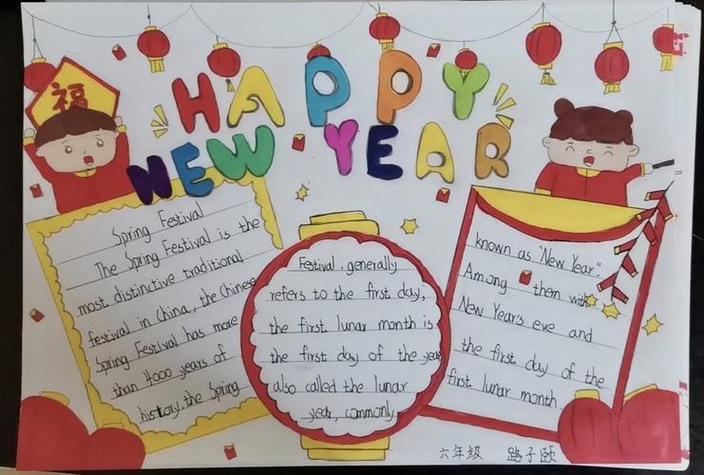 福
HAPPY
NEW YEAR
Spring Festival
The Spring Festival is the
most distinctive traditional
festival in China, the Chinese
Spring Festival has more
than 4000 years of
history. the Spring
Festival, generally
refers to the first day,
the first lunar month is
the first day of the year
also called the lunar
year, commonly
known as "New Year".
Among them with
New Year's eve and
the first day of the
first lunar month
六年级 路子颐